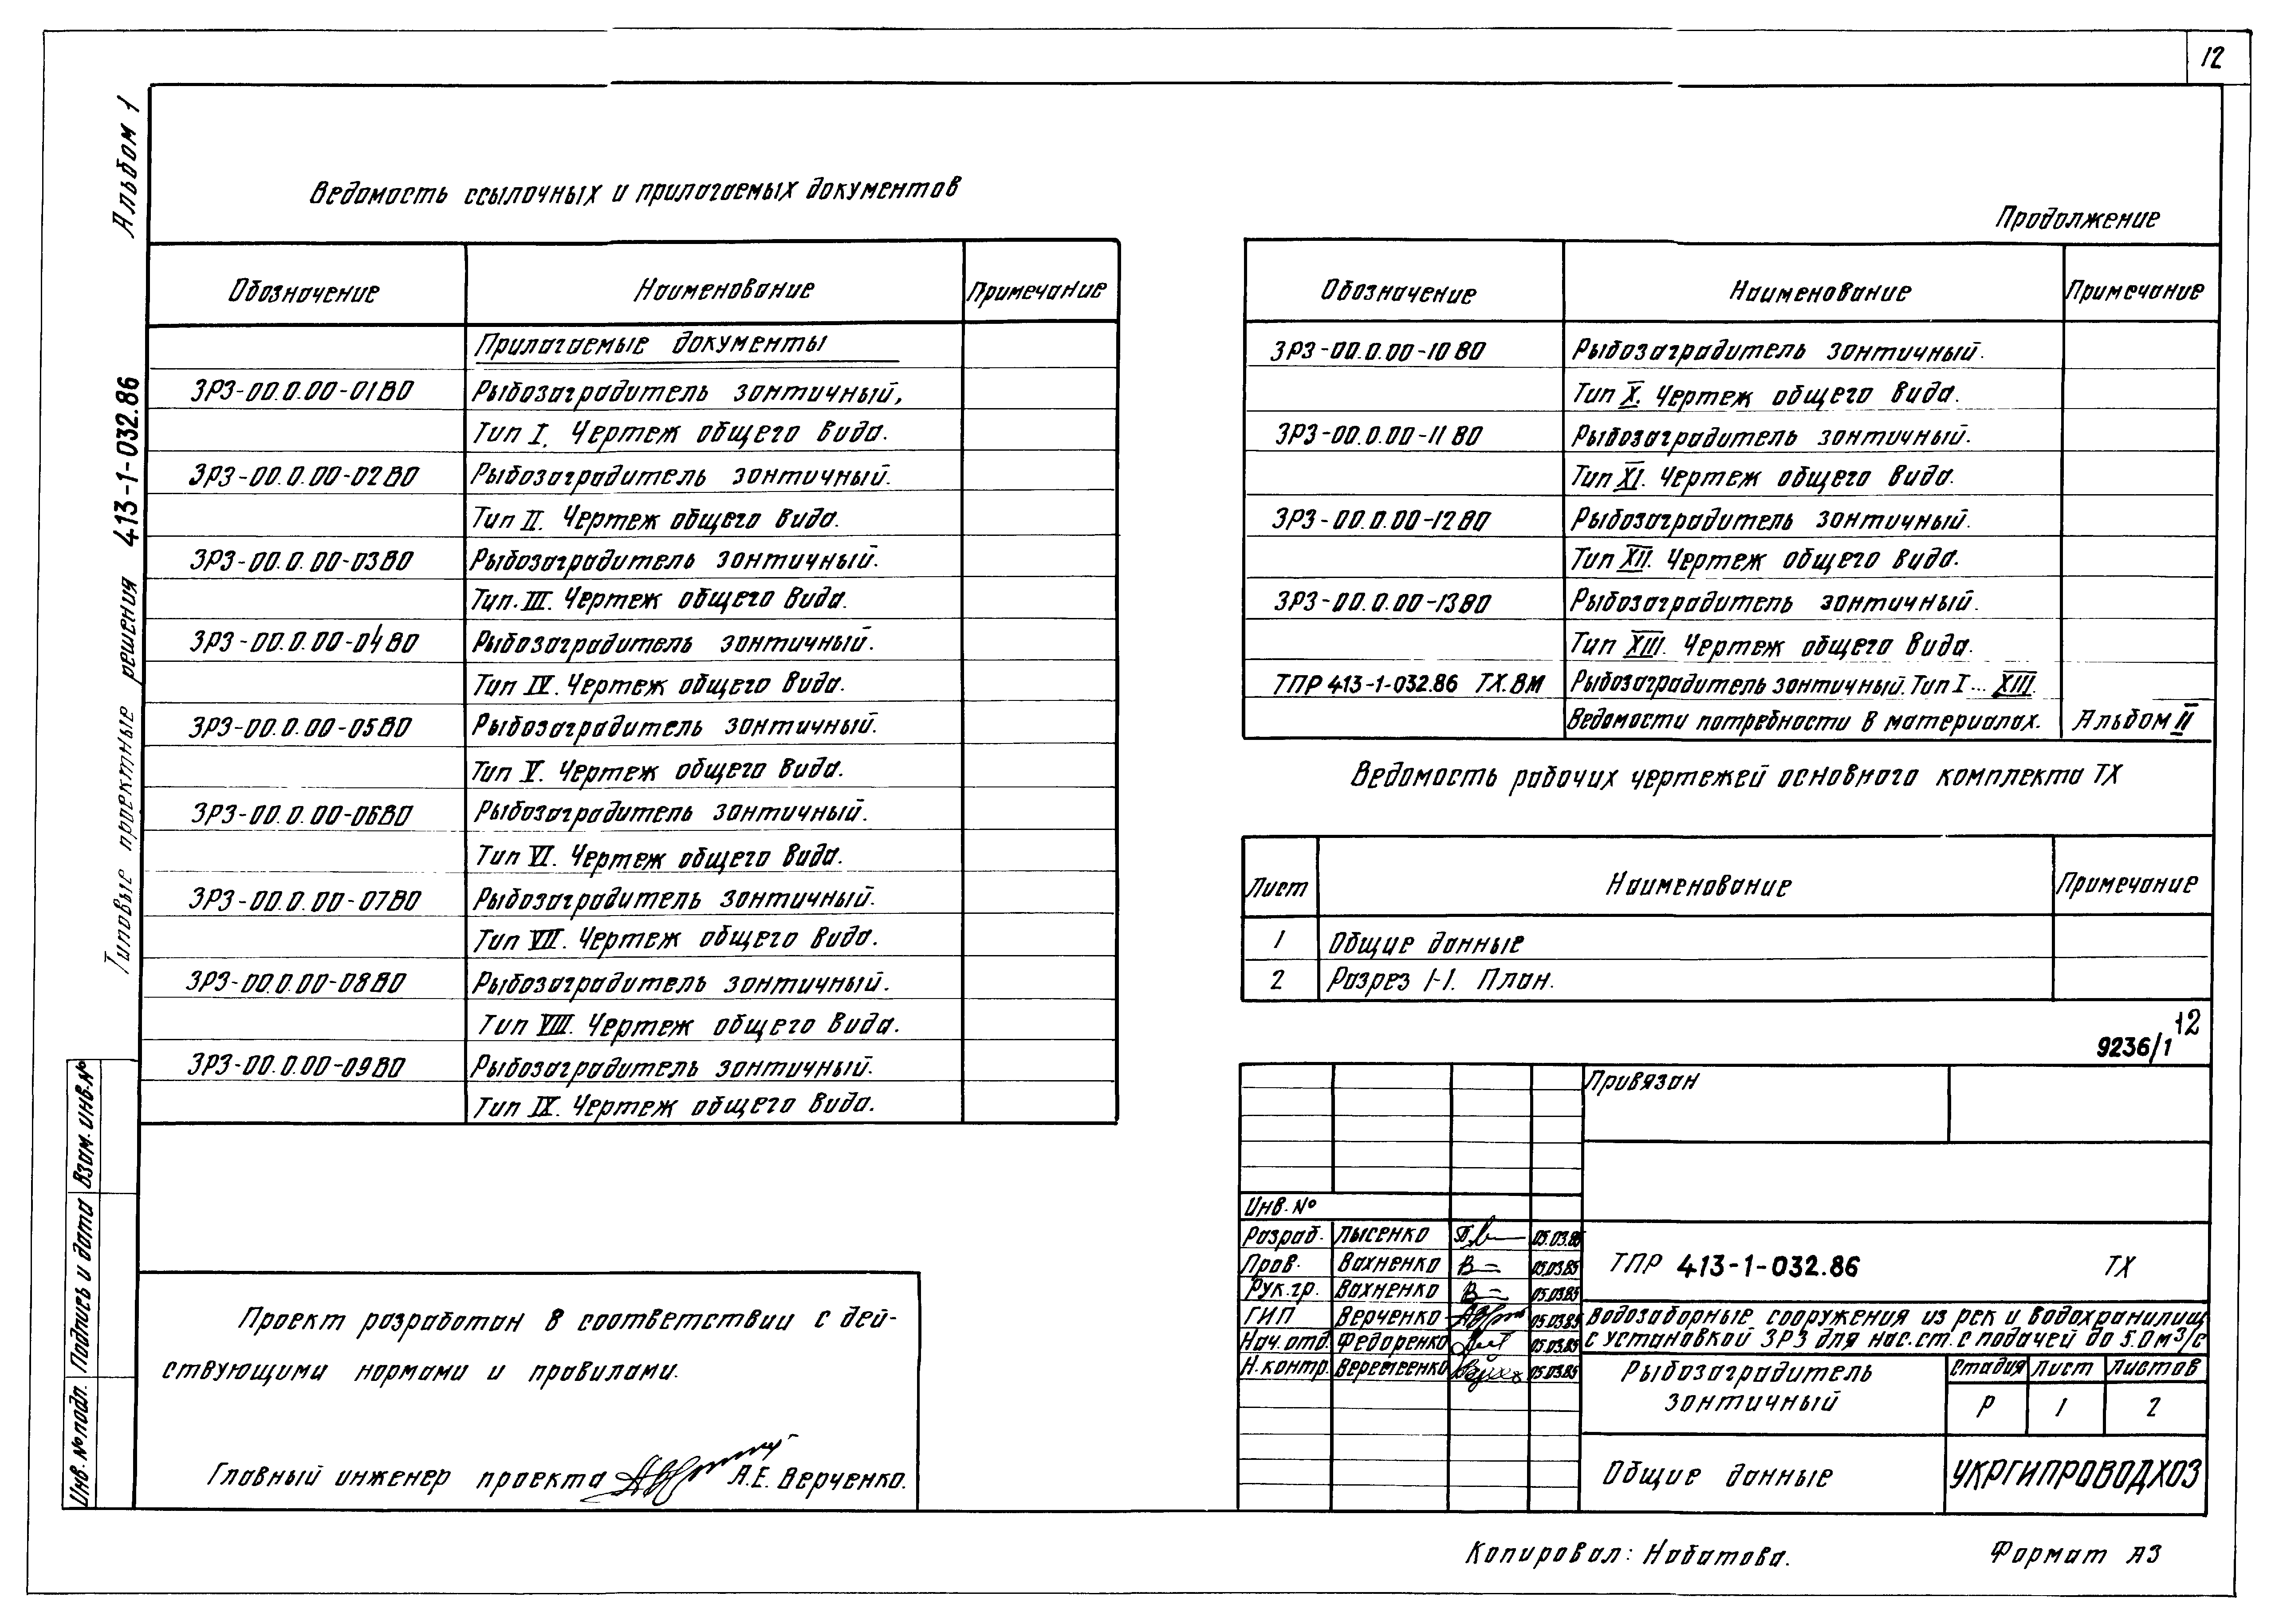 12
Альбом 1
Типовые проектные решения 413-1-032.86
Ведомость ссылочных и прилагаемых документов
Обозначение Наименование Примечание
Прилагаемые документы
ЗРЗ-00.0.00-01ВО Рыбозаградитель зонтичный,
Тип I. Чертеж общего вида.
ЗРЗ-00.0.00-02ВО Рыбозаградитель зонтичный.
Тип II. Чертеж общего вида.
ЗРЗ-00.0.00-03ВО Рыбозаградитель зонтичный.
Тип. III. Чертеж общего вида.
ЗРЗ-00.0.00-04ВО Рыбозаградитель зонтичный.
Тип IV. Чертеж общего вида.
ЗРЗ-00.0.00-05ВО Рыбозаградитель зонтичный.
Тип V. Чертеж общего вида.
ЗРЗ-00.0.00-06ВО Рыбозаградитель зонтичный.
Тип VI. Чертеж общего вида.
ЗРЗ-00.0.00-07ВО Рыбозаградитель зонтичный.
Тип VII. Чертеж общего вида.
ЗРЗ-00.0.00-08ВО Рыбозаградитель зонтичный.
Тип VIII. Чертеж общего вида.
ЗРЗ-00.0.00-09ВО Рыбозаградитель зонтичный.
Тип IX. Чертеж общего вида.
Продолжение
Обозначение Наименование Примечание
ЗРЗ-00.0.00-10ВО Рыбозаградитель зонтичный.
Тип X. Чертеж общего вида.
ЗРЗ-00.0.00-11ВО Рыбозаградитель зонтичный.
Тип XI. Чертеж общего вида.
ЗРЗ-00.0.00-12ВО Рыбозаградитель зонтичный.
Тип XII. Чертеж общего вида.
ЗРЗ-00.0.00-13ВО Рыбозаградитель зонтичный.
Тип XIII. Чертеж общего вида.
ТПР 413-1-032.86 ТХ.ВМ Рыбозаградитель зонтичный. Тип I... XIII.
Ведомости потребности в материалах. Альбом II
Ведомость рабочих чертежей основного комплекта ТХ
Лист Наименование Примечание
1 Общие данные
2 Разрез 1-1. План.
12
9236/1
Привязан
Инв. №
Разраб. Лысенко 05.03.85
Пров. Вахненко 05.03.85
Рук.гр. Вахненко 05.03.85
ГИП Верченко 05.03.85
Нач.отд. Федоренко 05.03.85
Н.контр. Веретеенко 05.03.85
ТПР 413-1-032.86 ТХ
Водозаборные сооружения из рек и водохранилищ
с установкой ЗРЗ для нас.ст. с подачей до 5.0м3/с
Рыбозаградитель
зонтичный
Стадия Лист Листов
Р 1 2
Общие данные
УКРГИПРОВОДХОЗ
Проект разработан в соответствии с дей-
ствующими нормами и правилами.
Главный инженер проекта А.Е. Верченко.
Взам. инв.№
Подпись и дата
Инв. № подл.
Копировал: Набатова.
Формат А3